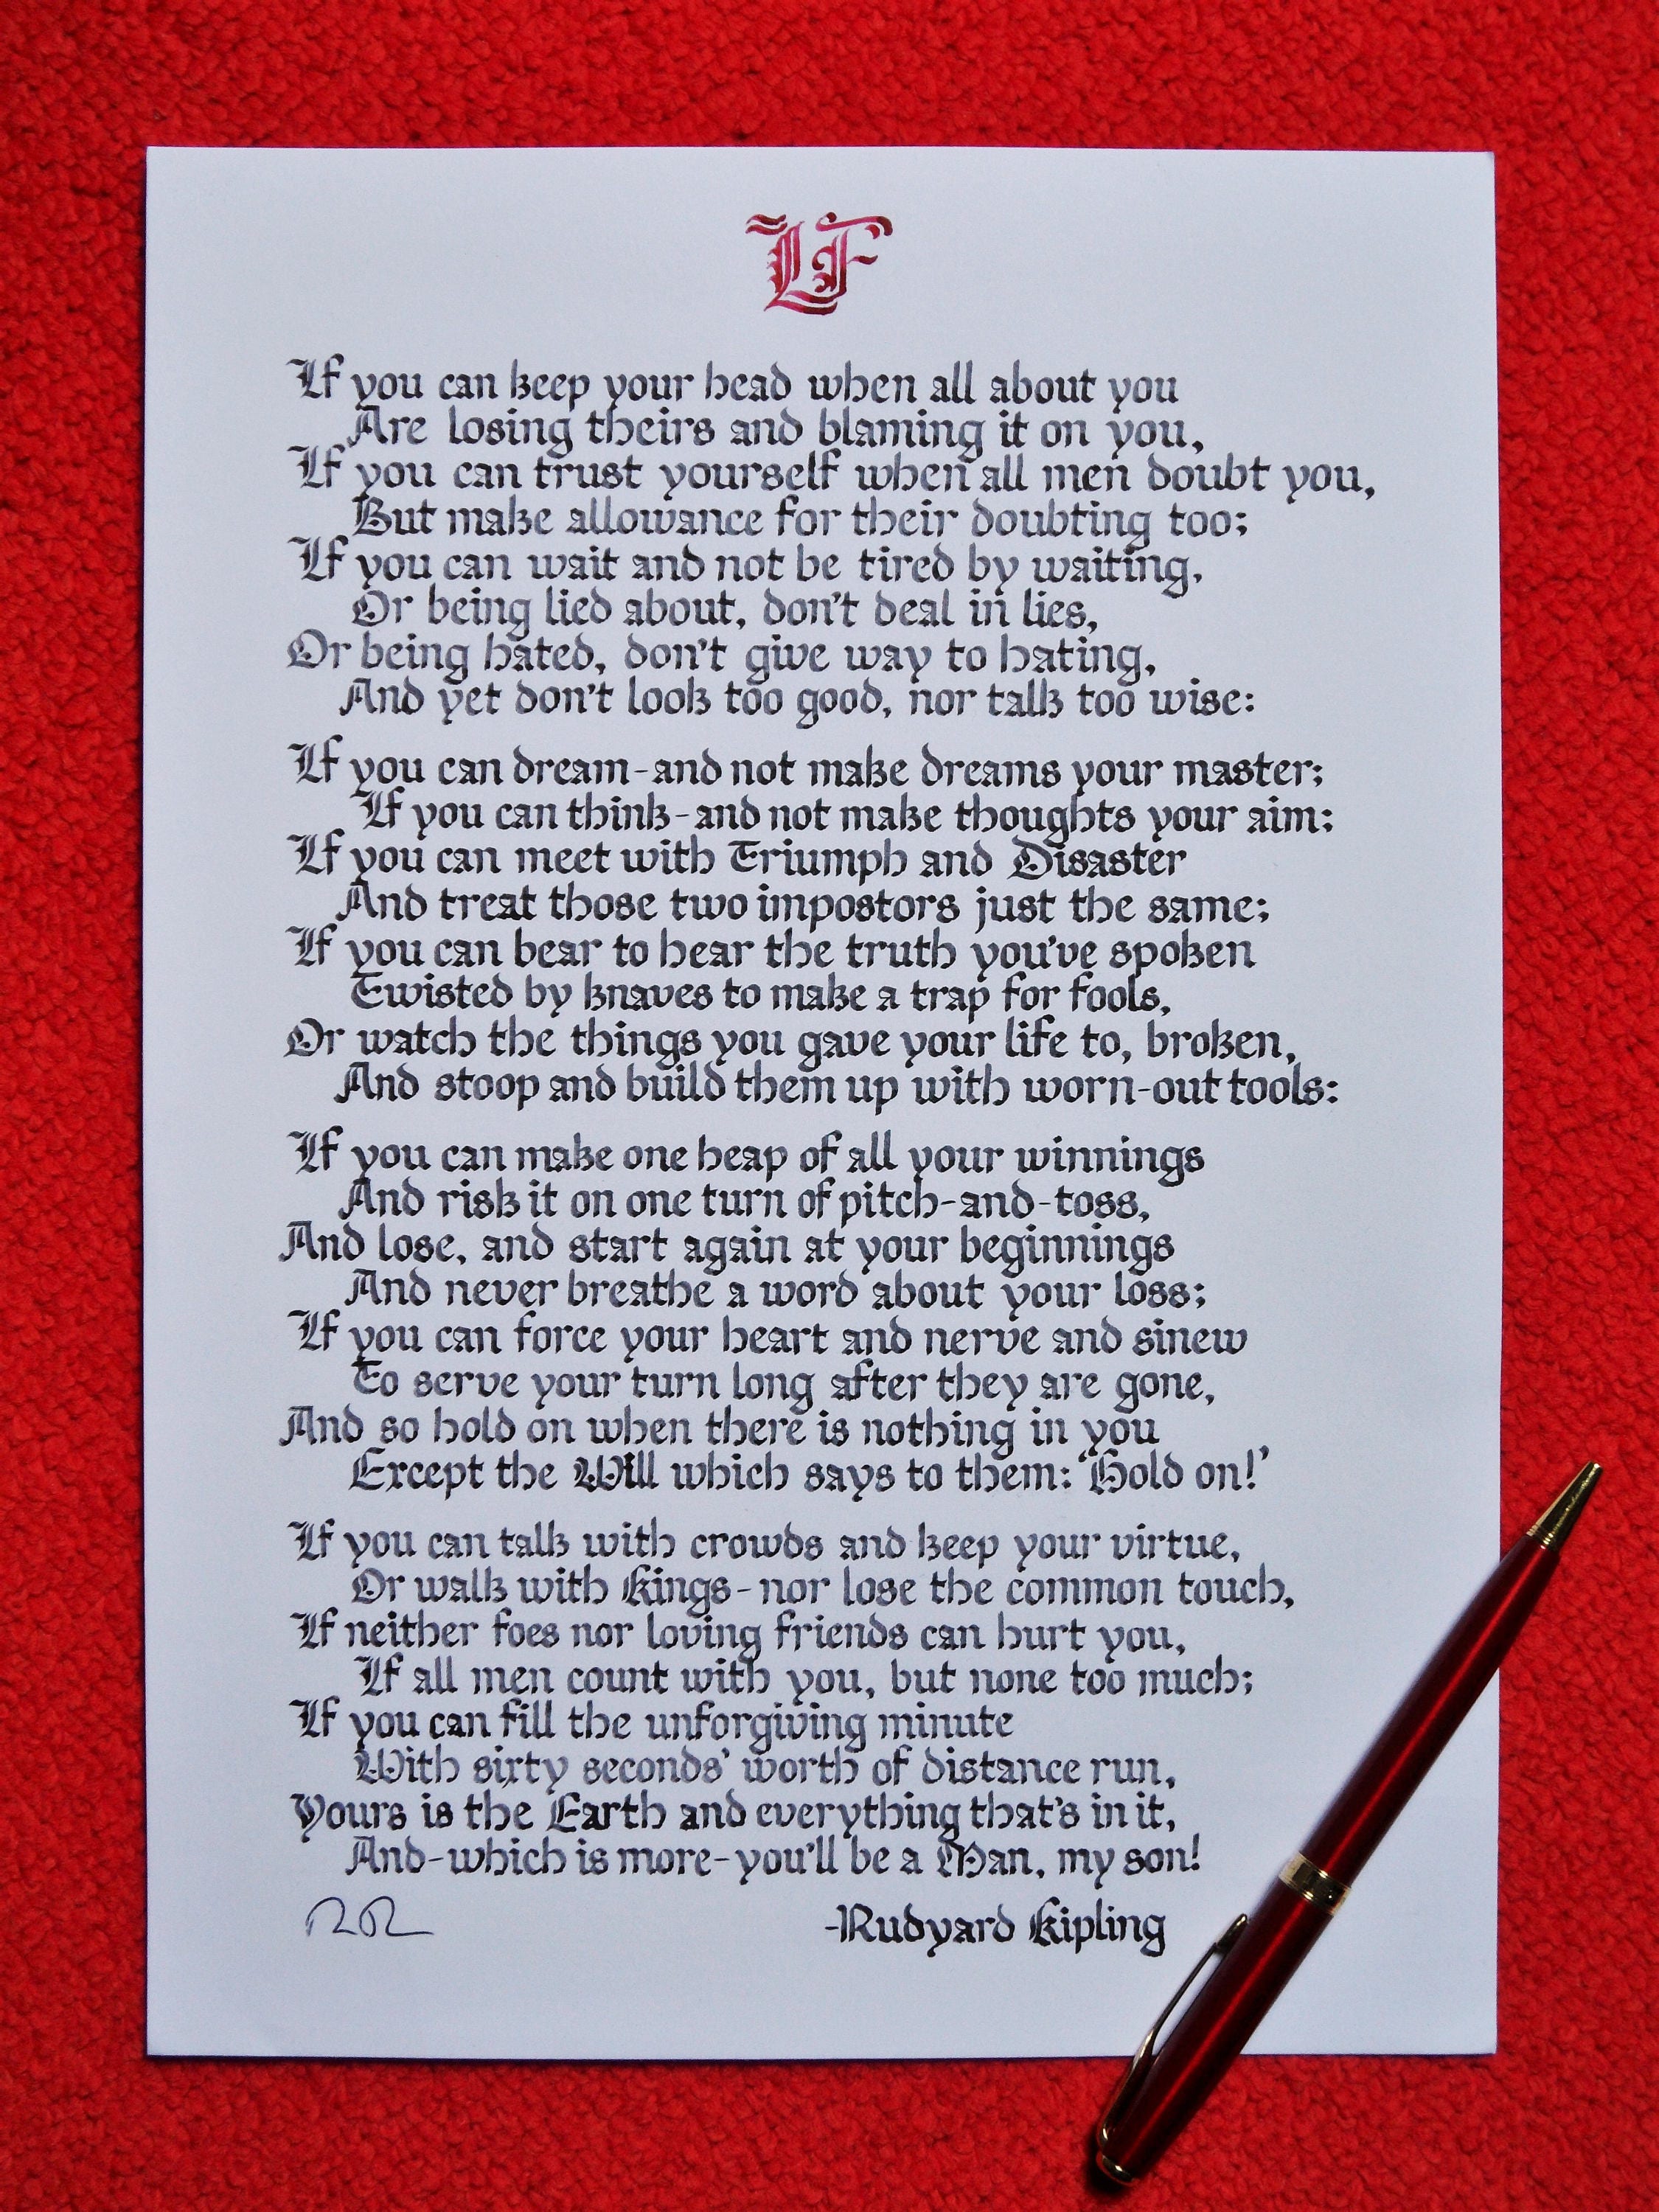 IF
If you can keep your head when all about you
Are losing theirs and blaming it on you,
If you can trust yourself when all men doubt you,
But make allowance for their doubting too;
If you can wait and not be tired by waiting,
Or being lied about, don't deal in lies,
Or being hated, don't give way to hating,
And yet don't look too good, nor talk too wise:
If you can dream-and not make dreams your master;
If you can think-and not make thoughts your aim;
If you can meet with Triumph and Disaster
And treat those two impostors just the same;
If you can bear to hear the truth you've spoken
Twisted by knaves to make a trap for fools,
Or watch the things you gave your life to, broken,
And stoop and build them up with worn-out tools:
If you can make one heap of all your winnings
And risk it on one turn of pitch-and-toss,
And lose, and start again at your beginnings
And never breathe a word about your loss;
If you can force your heart and nerve and sinew
To serve your turn long after they are gone,
And so hold on when there is nothing in you
Except the Will which says to them: 'Hold on!'
If you can talk with crowds and keep your virtue,
Or walk with Kings-nor lose the common touch,
If neither foes nor loving friends can hurt you,
If all men count with you, but none too much;
If you can fill the unforgiving minute
With sixty seconds' worth of distance run,
Yours is the Earth and everything that's in it,
And-which is more-you'll be a Man, my son!
-Rudyard Kipling